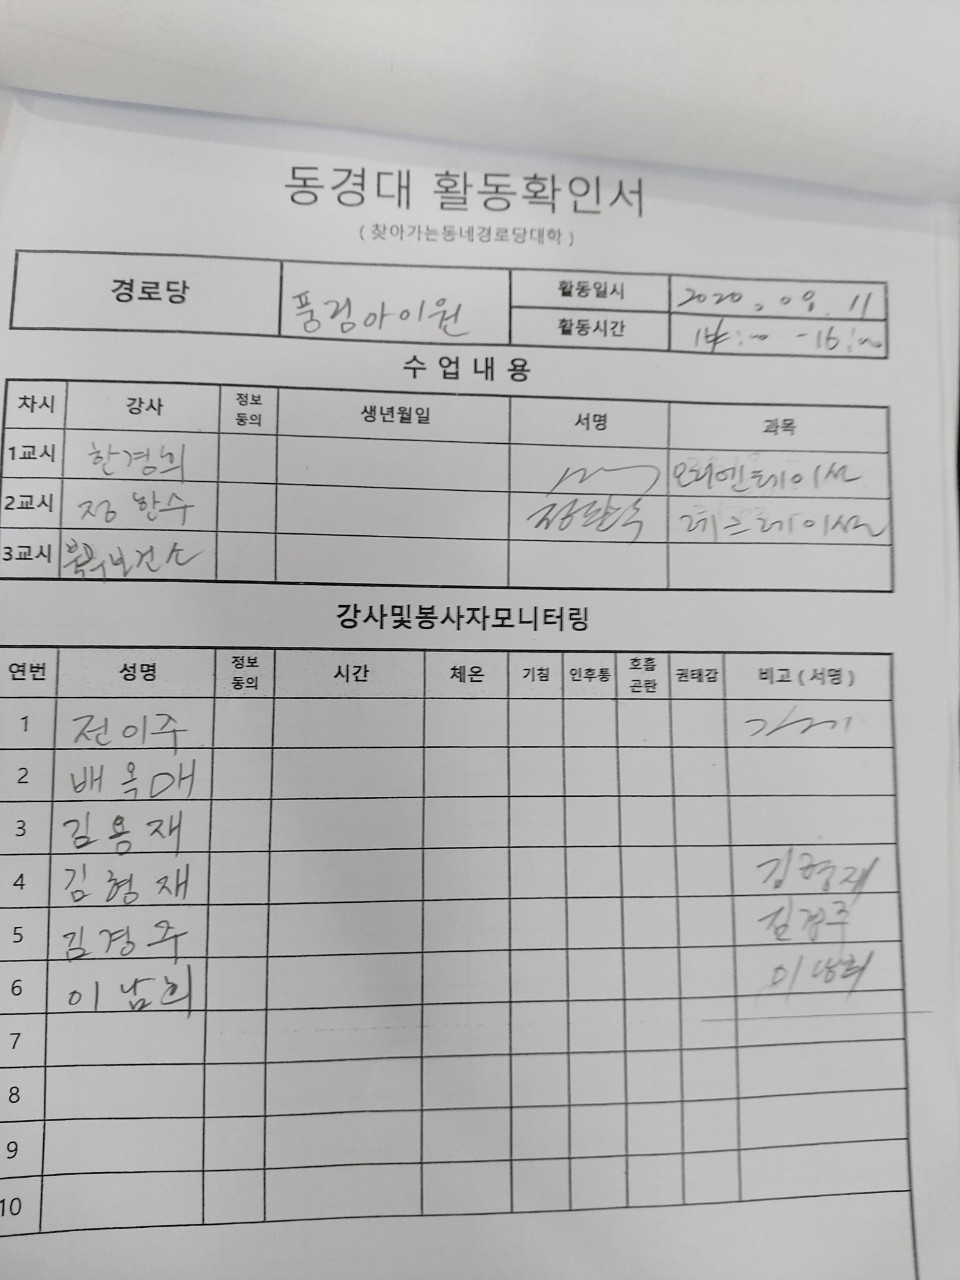 동경대 활동확인서
( 찾아가는동네경로당대학 )
경로당 풍림아이원 활동일시 2020. 09. 11
활동시간 14:00 - 16:00
수 업 내 용
차시 강사 정보동의 생년월일 서명 과목
1교시 한경희 오리엔테이션
2교시 정한수 정한수 레크레이션
3교시 북구보건소
강사및봉사자모니터링
연번 성명 정보동의 시간 체온 기침 인후통 호흡곤란 권태감 비고 ( 서명 )
1 전이주
2 배옥매
3 김용재
4 김형재 김형재
5 김경주 김경주
6 이남희 이남희
7
8
9
10